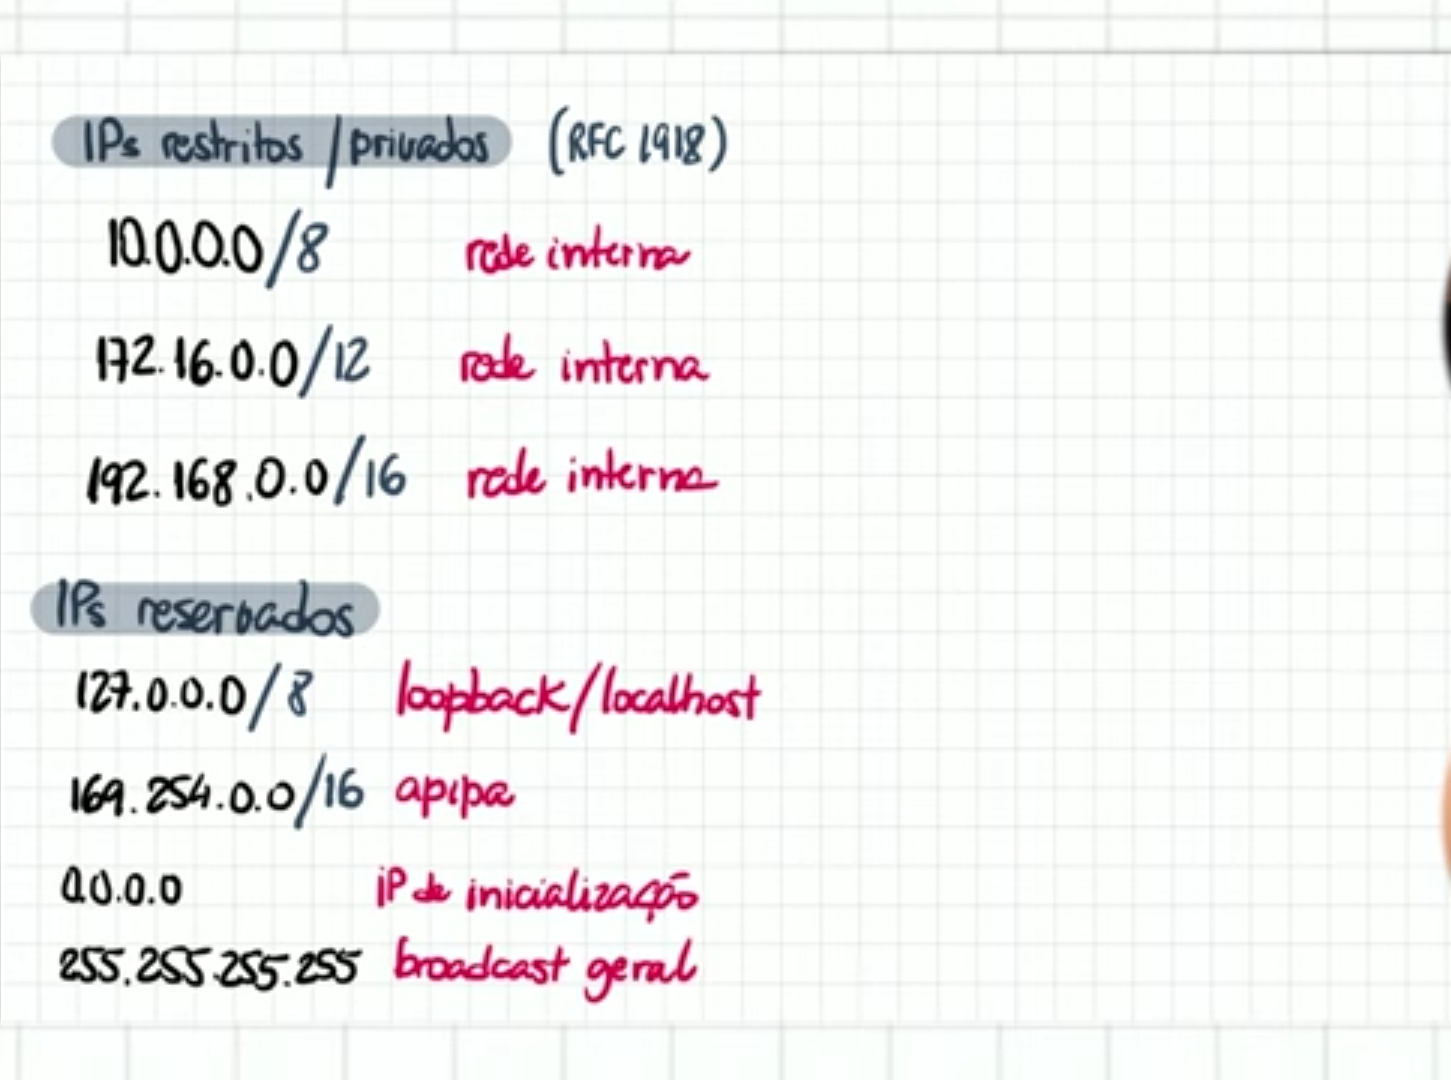 IPs restritos / privados (RFC 1918)
10.0.0.0/8 rede interna
172.16.0.0/12 rede interna
192.168.0.0/16 rede interna
IPs reservados
127.0.0.0/8 loopback/localhost
169.254.0.0/16 apipa
0.0.0.0 iP de inicialização
255.255.255.255 broadcast geral